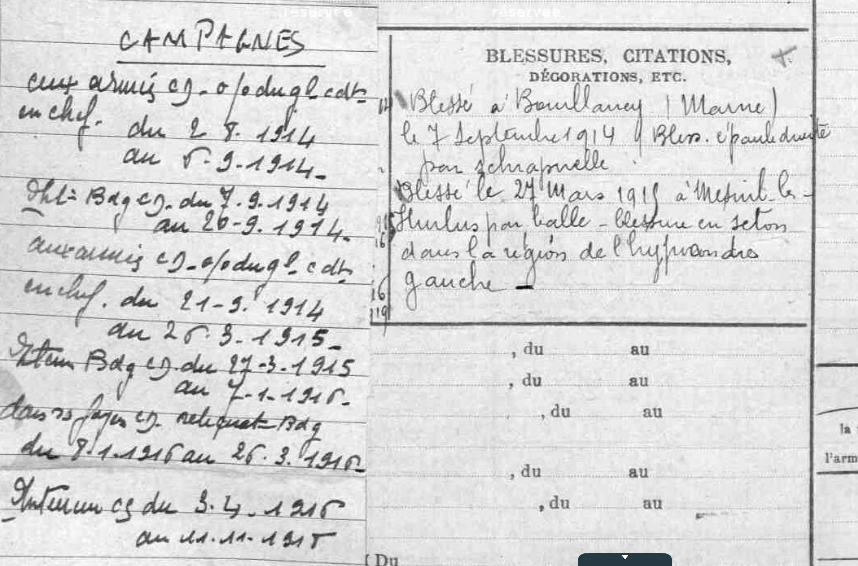 CAMPAGNES
aux armées CD. o/o du gl. cdt.
en chef.
du 2 8. 1914
au 6. 9. 1914.
Bdg CD. du 7. 9. 1914
au 20-9. 1914.
aux armées CD. o/o du gl. cdt
en chef. du 21-9. 1914
au 26. 3. 1915.
Bdg CD. du 27-3. 1915
au 7-1-1916.
dans ss foyers CD. reliquat Bdg
du 8.1.1916 au 26. 3. 1916.
du 3.4. 1916
au 11.11.1918
BLESSURES, CITATIONS,
DÉCORATIONS, ETC.
Blessé à Bouillancy (Marne)
le 7 Septembre 1914 Bless. épaule droite
par schrapnelle
Blessé le 27 Mars 1915 à Mesnil-les-
Hurlus par balle - blessure en seton
dans la région de l'hypocondre
gauche -
, du au
, du au
, du au
, du au
, du au
la
l'arm
Du